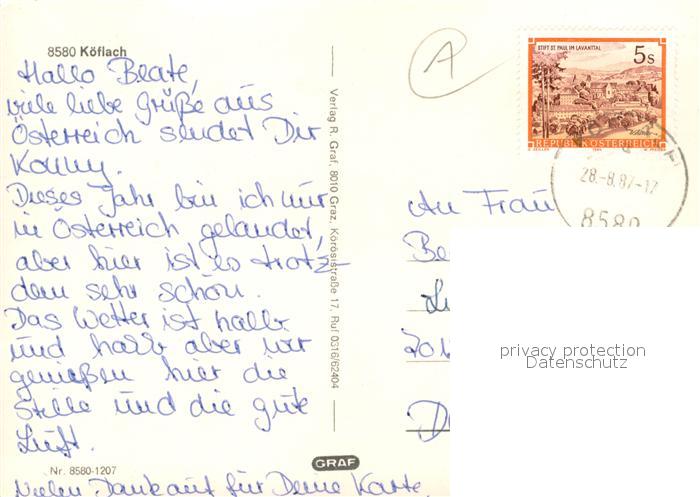 8580 Köflach
Hallo Beate,
viele liebe Grüße aus
Österreich sendet Dir
Conny.
Dieses Jahr bin ich nur
in Österreich gelandet,
aber hier ist es trotz-
dem sehr schön.
Das Wetter ist halb
und halb aber wir
genießen hier die
Stille und die gute
Luft.
Nr. 8580-1207
Vielen Dank auf für Deine Karte.
Verlag R. Graf, 8010 Graz, Koröststraße 17, Ruf 0316/62404
GRAF
A
STIFT ST. PAUL IM LAVANTTAL
5s
REPUBLIK ÖSTERREICH
28.-8.87-17
8580
An Frau
Be
privacy protection
Datenschutz